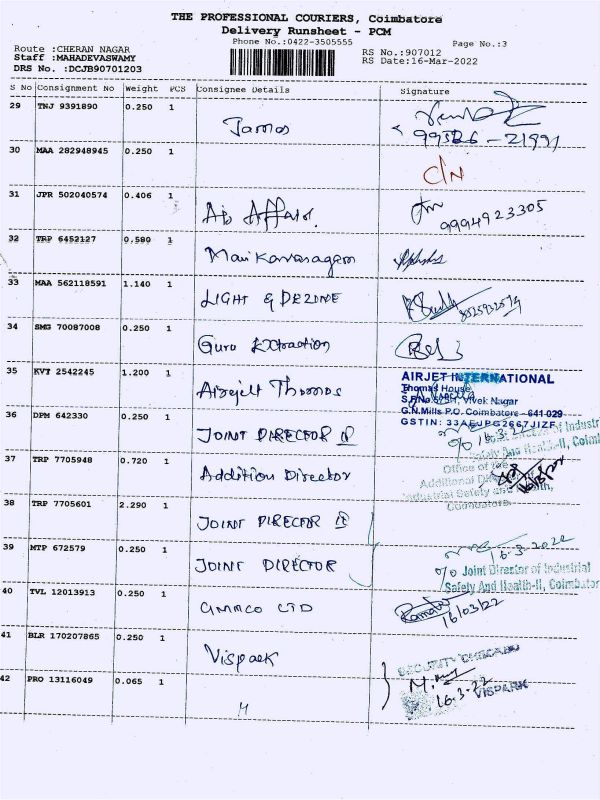 THE PROFESSIONAL COURIERS, Coimbatore
Delivery Runsheet - PCM
Phone No.:0422-3505555
Page No.:3
Route :CHERAN NAGAR
Staff :MAHADEVASWAMY
DRS No. :DCJB90701203
RS No.:907012
RS Date:16-Mar-2022
S No Consignment No Weight PCS Consignee Details Signature
29 TNJ 9391890 0.250 1
30 MAA 282948945 0.250 1 C/N
31 JPR 502040574 0.406 1 9994923305
32 TRP 6452127 0.580 1
33 MAA 562118591 1.140 1 LIGHT & DEZINE
34 SMG 70087008 0.250 1 Guru Extraction
35 KVT 2542245 1.200 1 Thomas
AIRJET INTERNATIONAL
Thomas House
Vivek Nagar
G.N.Mills P.O. Coimbatore - 641 029
GSTIN: 33AEUPG2667J1ZF
36 DPM 642330 0.250 1 JOINT DIRECTOR II
16.3.22
Safety And Health-II,
37 TRP 7705948 0.720 1 Addition Director
Office of the
Additional
Industrial Safety and Health,
Coimbatore.
38 TRP 7705601 2.290 1 JOINT DIRECTOR II
39 MTP 672579 0.250 1 JOINT DIRECTOR
16-3-2022
% Joint Director of Industrial
Safety And Health-II, Coimbator
40 TVL 12013913 0.250 1 GMMCO LTD
16/03/22
41 BLR 170207865 0.250 1 Vispark
SECURITY CHECKED
42 PRO 13116049 0.065 1 "
16-3-22 VISPARK